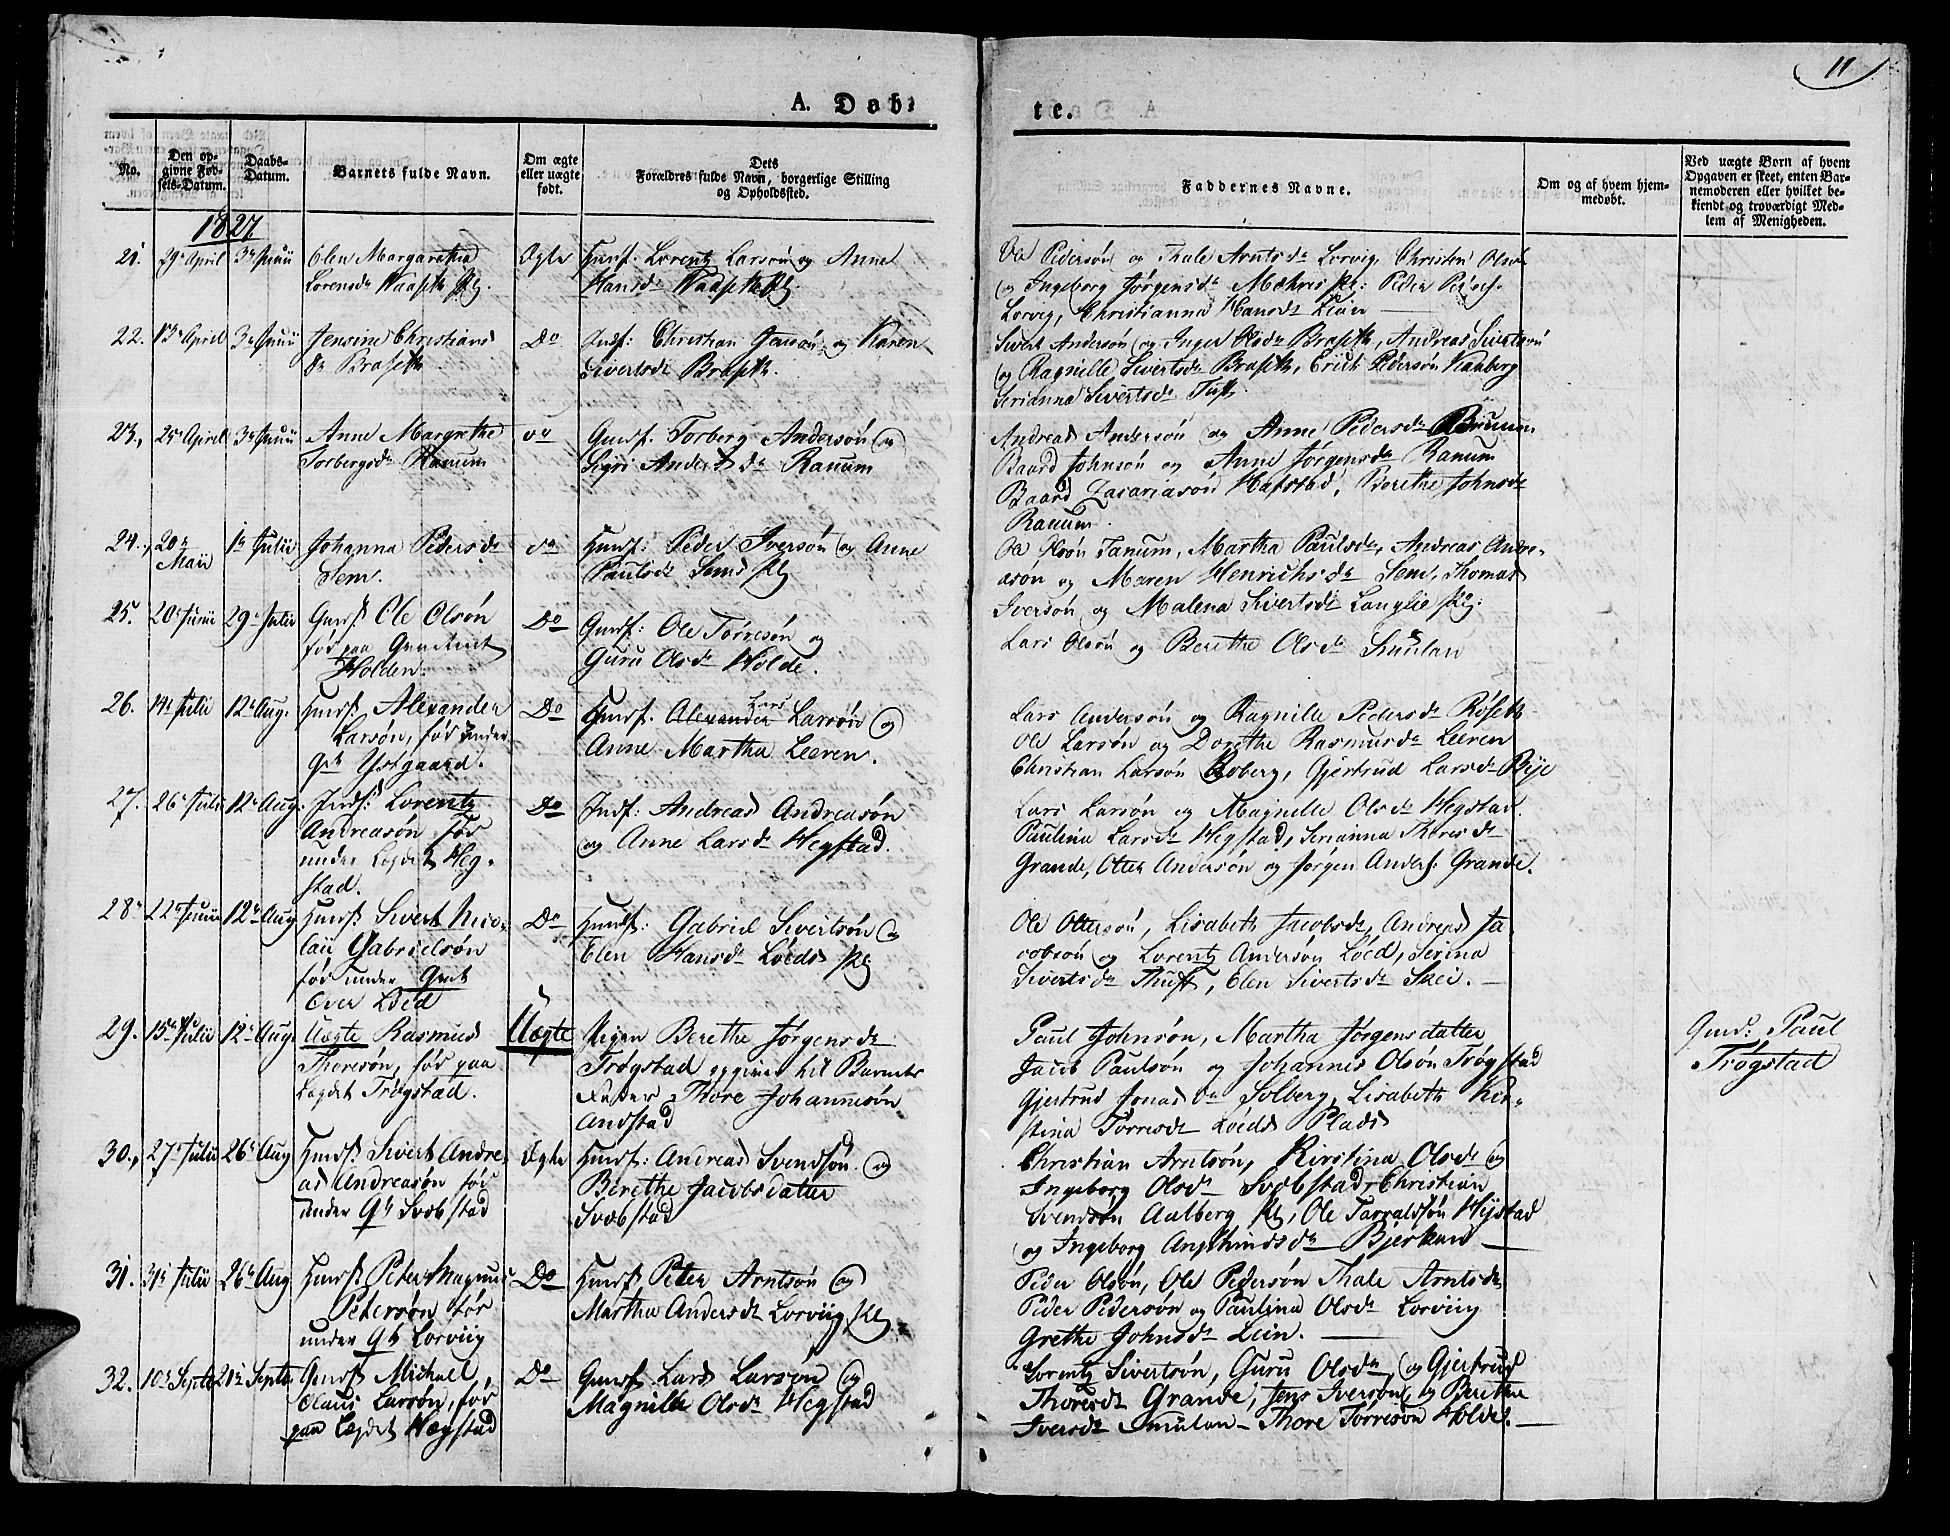 11
A. Døb-
te.
No.
Den op-
givne Fød-
sels-Datum.
Daabs-
Datum.
Barnets fulde Navn.
Om ægte
eller uægte
født.
Dets
Forældres fulde Navn, borgerlige Stilling
og Opholdssted.
Faddernes Navne.
Om og af hvem hjem-
medøbt.
Ved uægte Børn af hvem
Opgaven er skeet, enten Bar-
nemoderen eller hvilket be-
kiendt og troværdigt Med-
lem af Menigheden.
1827
21. 29 April 3 Junii
Elen Margaretha
Lorensdr
Ægte
Lorentz Larsøn og Anne
Hansdr
Ole Pedersøn og Thale Arntsdr Lorvig, Christen Ols
og Ingeborg Jørgensdr Peder
Lorvig, Christianna Hansdr Lein
22. 13 April 3 Junii
Jensine Christians
dr Braseth
Do
Indf: Christian og Karen
Sivertsdr Braseth.
Sivert Andersøn og Inger Olsdr Braseth, Andreas Sivertsøn
og Ragnille Sivertsdr Braseth, Erich Pedersøn
Serianna Sivertsdr
23. 25 April 3 Junii
Anne Margrethe
Torbergsdr Ranum
do
Gmdf. Torberg Andersøn og
Sigri Andersdr Ranum
Andreas Andersøn og Anne Pedersdr
Baard Johnsøn og Anne Jørgensdr Ranum
Baard Zacariasøn Hafstad, Berethe Johnsdr
Ranum.
24. 20 Maii 1 Julii
Johanna Pedersdr
Sem.
do
Hmdf: Peder Iversøn og Anne
Paulsdr Sems Plads
Ole Olsøn Tanum, Martha Paulsdr, Andreas Andre-
asøn og Maren Henrichsdr Sem, Thomas
Iversøn og Malena Sivertsdr Langlie Pl:
25. 20 Junii 29 Julii
Gmdsb Ole Olsøn
fød paa
Holden.
Do
Gmdf: Ole Torresøn og
Guru Olsdr Holde.
Lars Olsøn og Berethe Olsdr Smulan
26. 14 Julii 12 Aug.
Hmdsb Alexander
Larsøn, fød under
Gd Ystgaard.
Do
Hmdf. Alexander Lars Larsøn og
Anne Martha Leeren.
Lars Andersøn og Ragnille Pedersdr Røseth
Ole Larsøn og Dorethe Rasmusdr Leeren
Christian Larsøn Roberg, Gjertrud Larsdr Bye
27. 26 Julii 12 Aug:
Indsb: Lorentz
Andreasøn fød
under Legdet Heg-
stad.
Do
Indf: Andreas Andreasøn
og Anne Larsdr Hegstad.
Lars Larsøn og Magnille Olsdr Hegstad.
Paulina Larsdr Hegstad, Serianna Thoresdr
Grande, Otter Andersøn og Jørgen Anders: Grande.
28 22 Junii 12 Aug
Hmdsb Sivert Nico-
laii Gabrielsøn
fød under
Over Løed
Do
Hmdf: Gabriel Sivertsøn og
Elen Hansdr Løeds Pl
Ole Ottersøn, Lisabeth Jacobsdr, Andreas Ja-
cobsøn og Lorentz Andersøn Løed, Serina
Sivertsdr Thuft, Elen Sivertsdr Skei.
29. 15 Julii 12 Aug.
Uægte Rasmus
Thoresøn, fød paa
Legdet Trøgstad.
Uægte
Pigen Berethe Jørgensdr
Trøgstad opgiver til Barnets
Fader Thore Johannesøn
Andstad
Paul Johnsøn, Martha Jørgensdatter
Jacob Paulsøn og Johannes Olsøn Trøgstad
Gjertrud Jonasdr Solberg, Lisabeth Kir-
stina Torresdr Løeds Plads
Gmd: Paul
Trøgstad
30. 27 Julii 26 Aug
Hmdsb Sivert Andre-
as Andreasøn fød
under Gd Svebstad
Ægte
Hmdf: Andreas Svendsøn og
Berethe Jacobsdatter
Svebstad
Christian Arntsøn, Kirstina Olsdr og
Ingeborg Olsdr Svebstad, Christian
Svendsøn Aalberg Pl, Ole Tarraldsøn
og Ingeborg Bjerkan
31. 31 Julii 26 Aug
Hmdsb Peter Magnus
Petersøn fød
under Gd Lorviig
Do
Hmdf Peter Arntsøn og
Martha Andersdr Lorviig Pl
Peder Olsøn, Ole Pedersøn Thale Arntsdr
Peder Pedersøn og Paulina Olsdr Lorviig
Grethe Johnsdr Lein.
32. 10 Septb 21 Septb
Gmdsb Michael,
Claus Larsøn, fød
paa Legdet Hegstad
Do
Gmdf. Lars Larsøn og
Magnille Olsdr Hegstad
Lorentz Sivertsøn, Guru Olsdr, og Gjertrud
Thoresdr Grande, Jens Iversøn, og Berethe
Iversdr Smulan Thore Torresøn Holde.